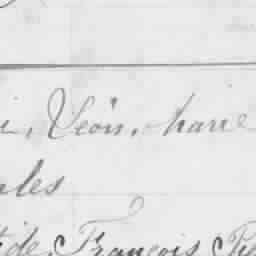 i, Léon, harie
les
de, François Pi